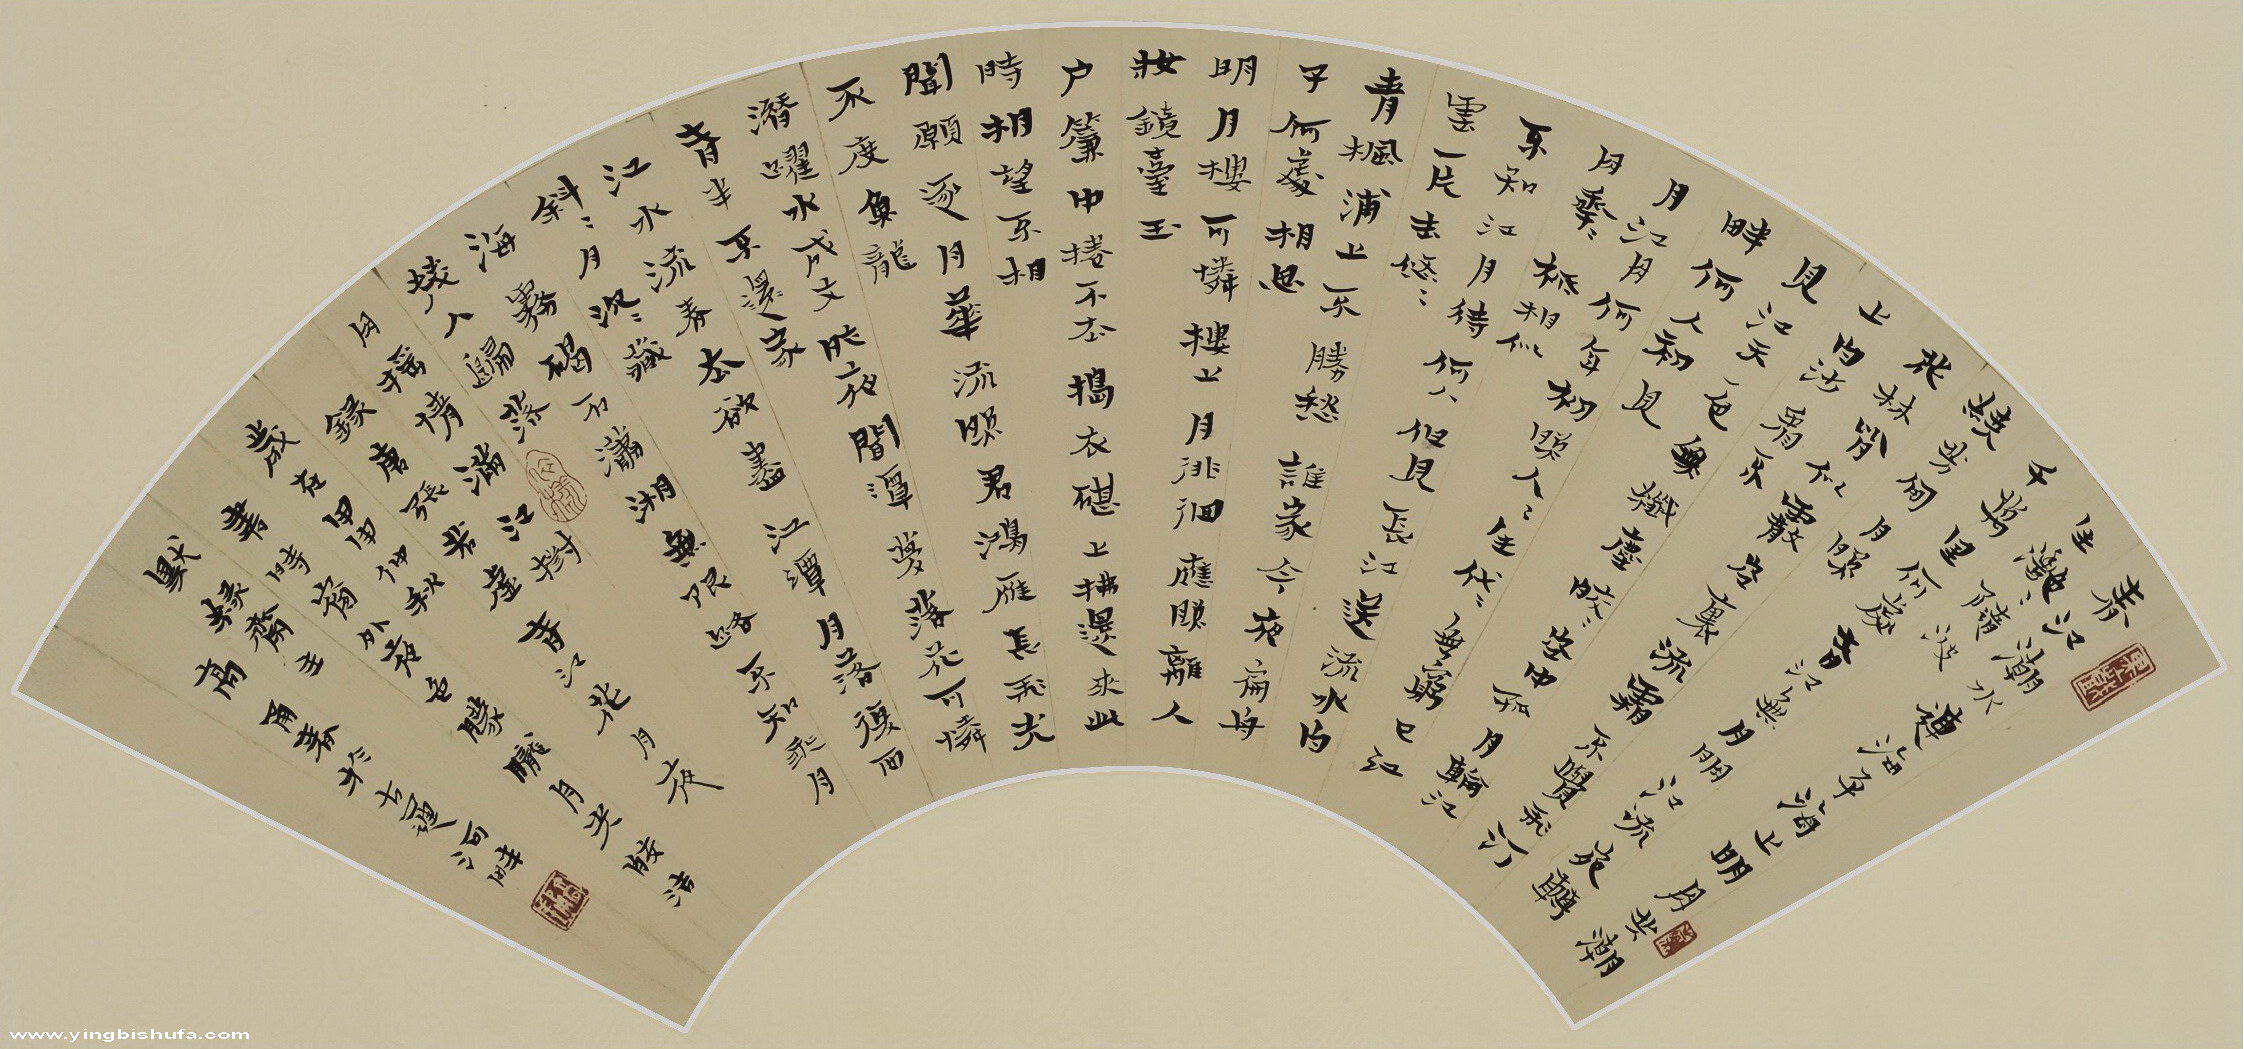 春江潮水連海平海上明月共潮
生灩々隨波
千萬里何處春江無月明江流宛轉
繞芳甸月照
花林皆似霰空裏流霜不覺飛汀
上白沙看不
見江天一色無纖塵皎々空中孤月輪江
畔何人初見
月江月何年初照人々生代々無窮已江
月年々祇相似
不知江月待何人但見長江送流水白
雲一片去悠々
青楓浦上不勝愁誰家今夜扁舟
子何處相思
明月樓可憐樓上月徘徊應照離人
妝鏡臺玉
户簾中捲不去搗衣砧上拂還來此
時相望不相
聞願逐月華流照君鴻雁長飛光
不度魚龍
潛躍水成文昨夜閒潭夢落花可憐
春半不還家
江水流春去欲盡江潭月落復西
斜々月沉々藏
海霧碣石瀟湘無限路不知乘月
幾人歸落
月搖情滿江樹
錄唐張若虛春江花月夜
歲在甲申仲秋
書時窗外夜色朦朧月光皎潔
默緣齋主
高甬春於古運河畔
www.yingbishufa.com